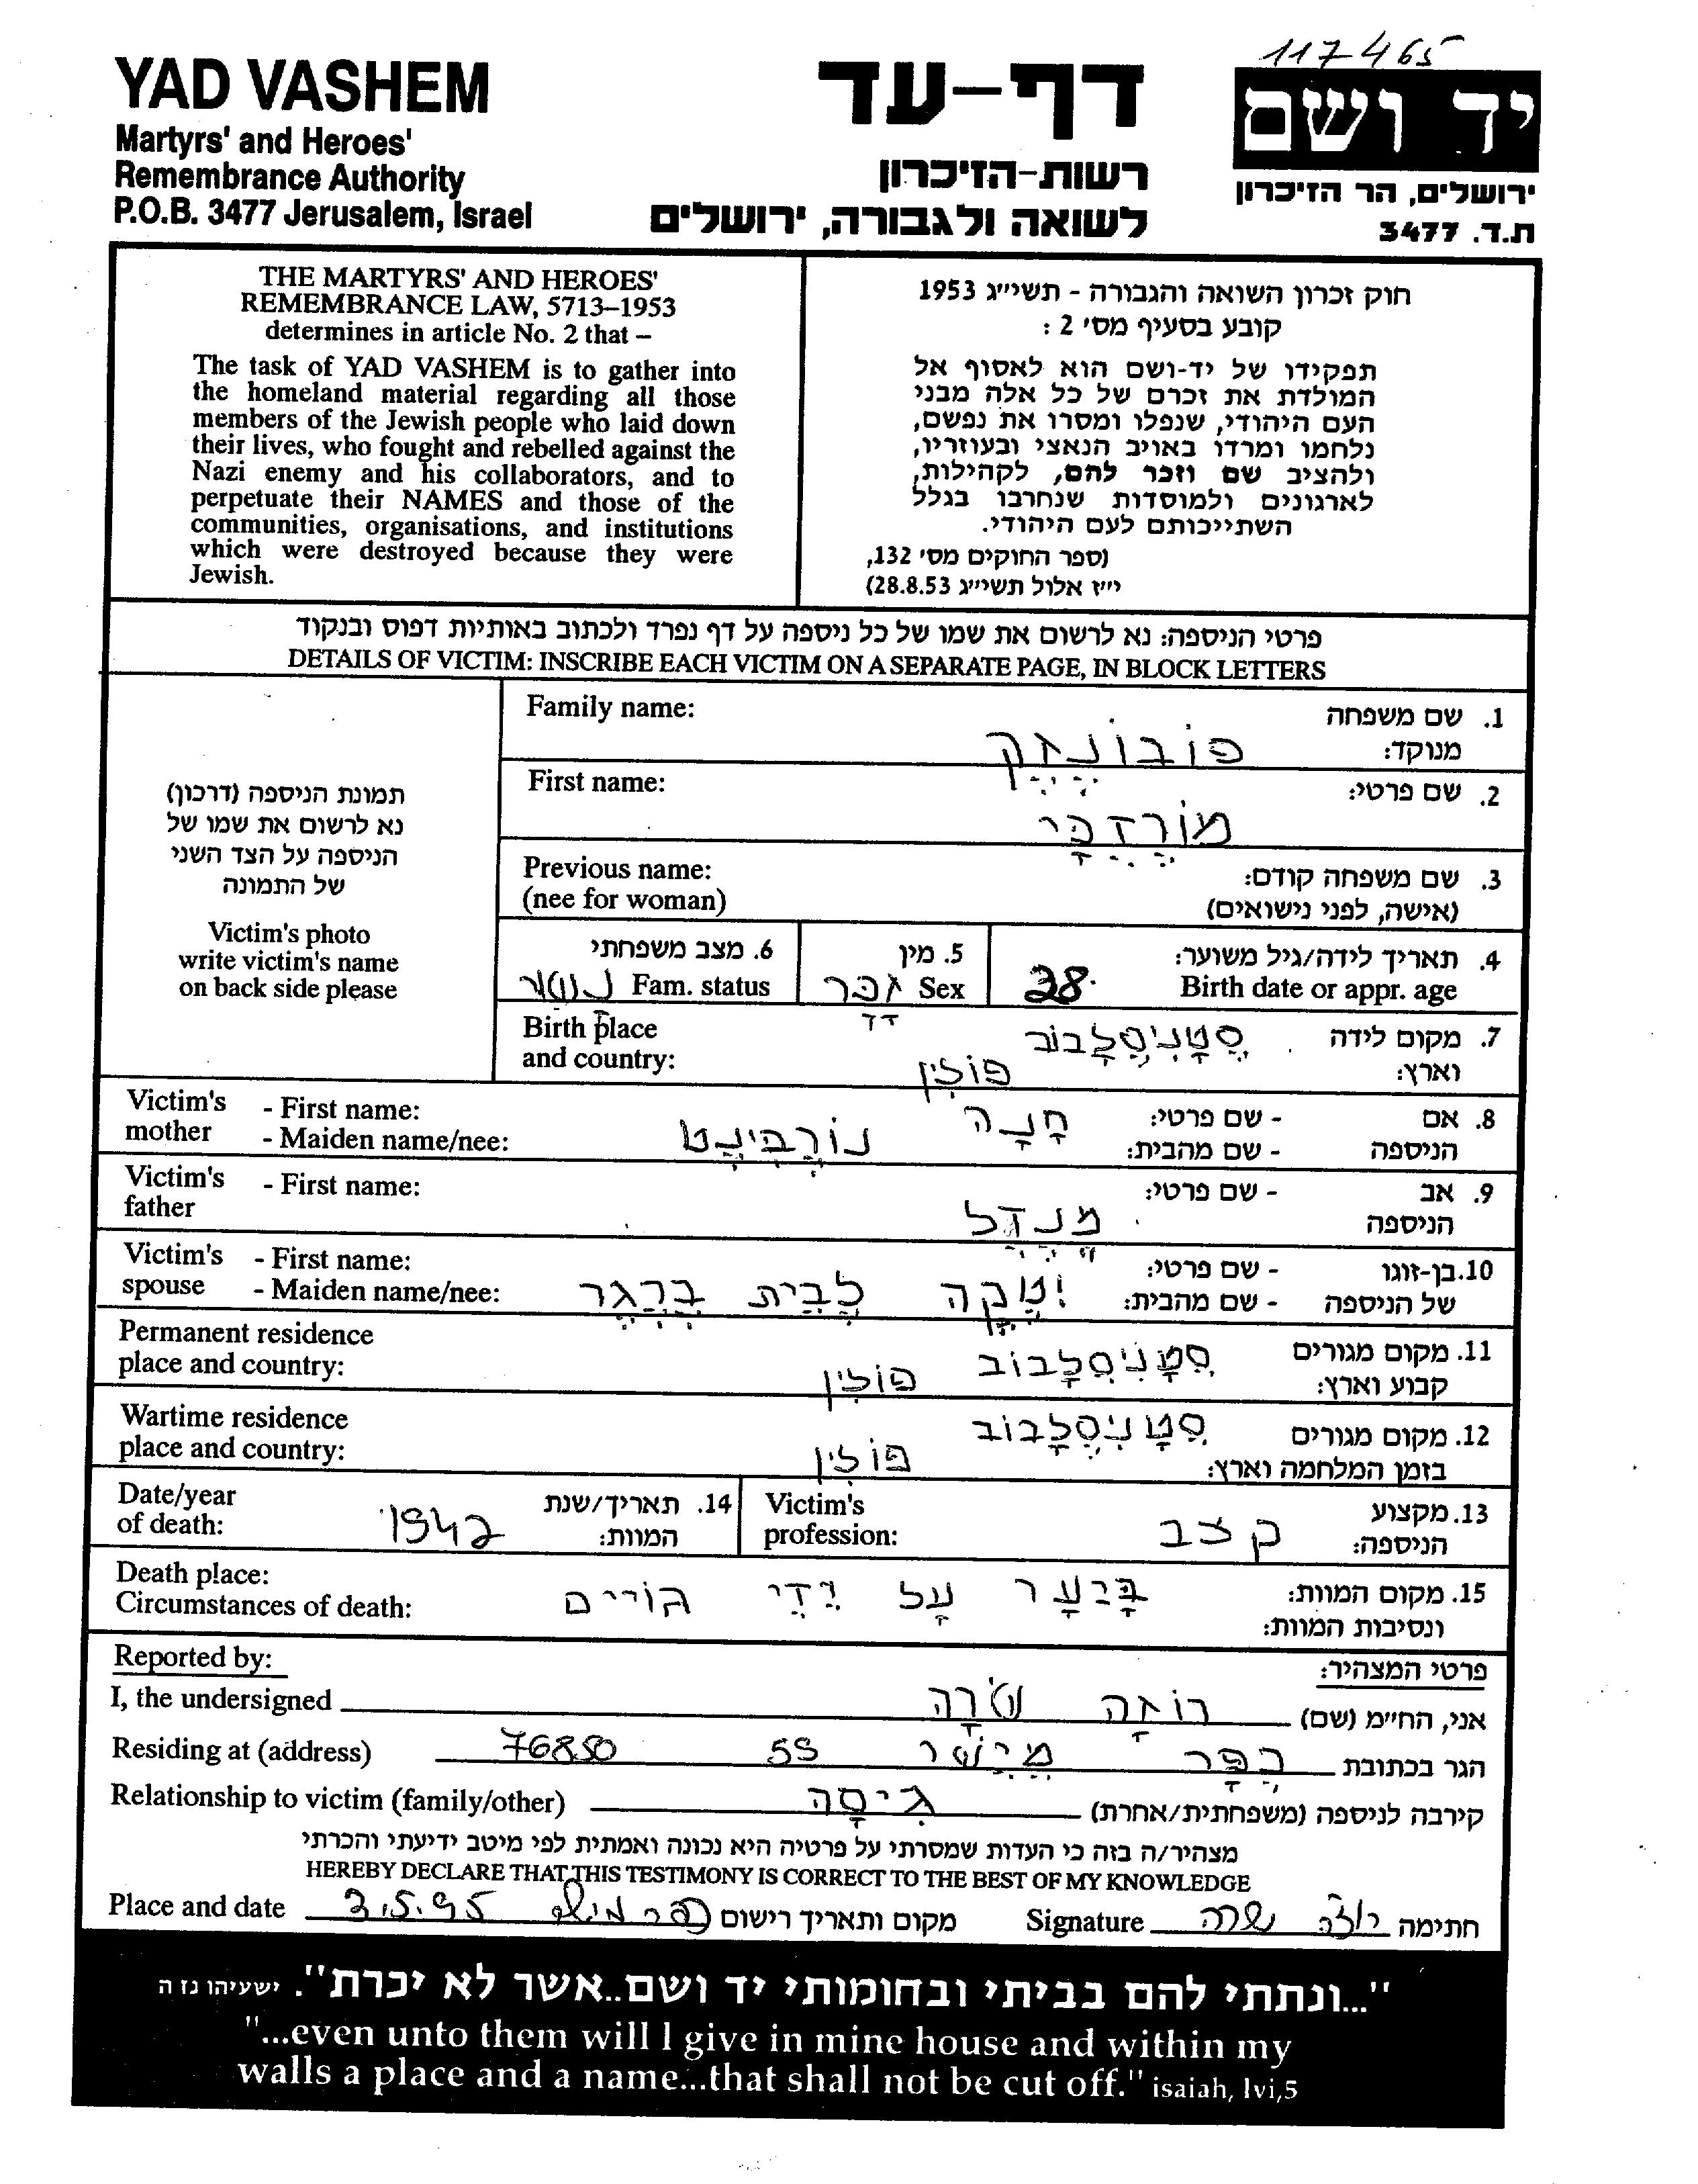 117465
YAD VASHEM
Martyrs' and Heroes'
Remembrance Authority
P.O.B. 3477 Jerusalem, Israel
דף-עד
רשות-הזיכרון
לשואה ולגבורה, ירושלים
יד ושם
ירושלים, הר הזיכרון
ת.ד. 3477
THE MARTYRS' AND HEROES'
REMEMBRANCE LAW, 5713–1953
determines in article No. 2 that –
The task of YAD VASHEM is to gather into
the homeland material regarding all those
members of the Jewish people who laid down
their lives, who fought and rebelled against the
Nazi enemy and his collaborators, and to
perpetuate their NAMES and those of the
communities, organisations, and institutions
which were destroyed because they were
Jewish.
חוק זכרון השואה והגבורה - תשי״ג 1953
קובע בסעיף מס׳ 2 :
תפקידו של יד-ושם הוא לאסוף אל
המולדת את זכרם של כל אלה מבני
העם היהודי, שנפלו ומסרו את נפשם,
נלחמו ומרדו באויב הנאצי ובעוזריו,
ולהציב שם וזכר להם, לקהילות,
לארגונים ולמוסדות שנחרבו בגלל
השתייכותם לעם היהודי.
(ספר החוקים מס׳ 132,
י״ז אלול תשי״ג 28.8.53)
פרטי הניספה: נא לרשום את שמו של כל ניספה על דף נפרד ולכתוב באותיות דפוס ובנקוד
DETAILS OF VICTIM: INSCRIBE EACH VICTIM ON A SEPARATE PAGE, IN BLOCK LETTERS
תמונת הניספה (דרכון)
נא לרשום את שמו של
הניספה על הצד השני
של התמונה
Victim's photo
write victim's name
on back side please
Family name: 1. שם משפחה
מנוקד: פובונזק
First name: 2. שם פרטי:
מורדכי
Previous name: 3. שם משפחה קודם:
(nee for woman) (אישה, לפני נישואים)
4. תאריך לידה/גיל משוער:
Birth date or appr. age 38
5. מין
Sex זכר
6. מצב משפחתי
Fam. status נשוי
Birth place 7. מקום לידה סטניסלבוב
and country: וארץ: פולין
Victim's mother - First name: 8. אם הניספה - שם פרטי: חנה
- Maiden name/nee: - שם מהבית:
Victim's father - First name: 9. אב הניספה - שם פרטי: מנדל
Victim's spouse - First name: 10. בן-זוגו של הניספה - שם פרטי:
- Maiden name/nee: - שם מהבית: לבית ברגר
Permanent residence 11. מקום מגורים סטניסלבוב
place and country: קבוע וארץ: פולין
Wartime residence 12. מקום מגורים סטניסלבוב
place and country: בזמן המלחמה וארץ: פולין
Date/year of death: 14. תאריך/שנת המוות: 1942
Victim's profession: 13. מקצוע הניספה: קצב
Death place: 15. מקום המוות:
Circumstances of death: ונסיבות המוות: ביער על ידי גויים
Reported by: פרטי המצהיר:
I, the undersigned אני, החי״מ (שם) רוזה שרה
Residing at (address) הגר בכתובת כפר מישר 55 76850
Relationship to victim (family/other) קירבה לניספה (משפחתית/אחרת) גיסה
מצהיר/ה בזה כי העדות שמסרתי על פרטיה היא נכונה ואמתית לפי מיטב ידיעתי והכרתי
HEREBY DECLARE THAT THIS TESTIMONY IS CORRECT TO THE BEST OF MY KNOWLEDGE
Place and date 3.5.95 כפר מישר מקום ותאריך רישום Signature רוזה שרה חתימה
"...ונתתי להם בביתי ובחומותי יד ושם..אשר לא יכרת". ישעיהו נז ה
"...even unto them will I give in mine house and within my
walls a place and a name...that shall not be cut off." isaiah, lvi,5